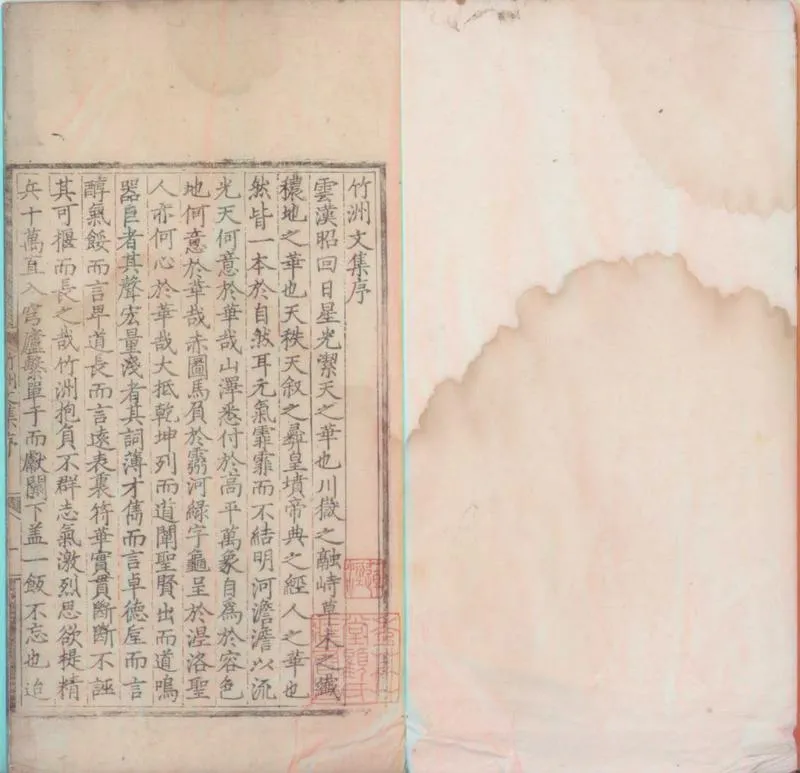 竹洲文集序
雲漢昭回日星光潔天之華也川嶽之融峙草木之纖
穠地之華也天秩天叙之彛皇墳帝典之經人之華也
然皆一本於自然耳元氣霏霏而不結明河澹澹以流
光天何意於華哉山澤悉付於高平萬象自爲於容色
地何意於華哉赤圖馬負於河綠字龜呈於洛聖
人亦何心於華哉大抵乾坤列而道闡聖賢出而道鳴
器巨者其聲宏量淺者其詞薄才雋而言卓德厖而言
醇氣餒而言卑道長而言遠表裏符華實貫斷斷不誣
其可揠而長之哉竹洲抱負不群志氣激烈思欲提精
兵十萬直入穹廬繫單于而獻闕下盖一飯不忘也迨
竹洲文集序
一